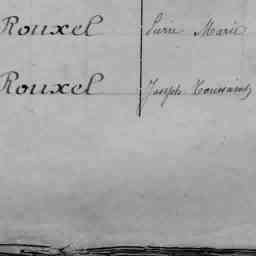 Rouxel Pierre Marie
Rouxel Joseph Toussaint